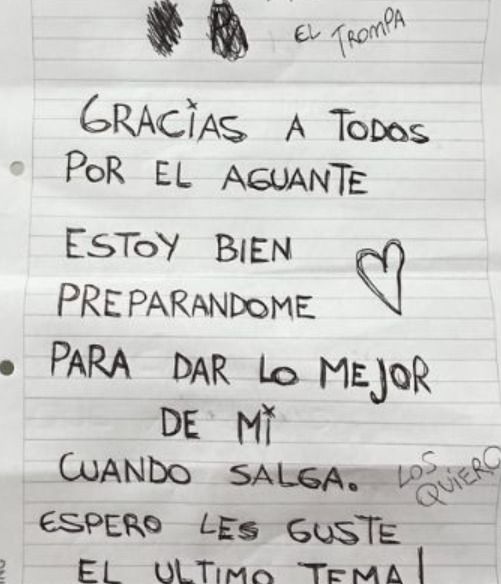 EL TROMPA
GRACIAS A TODOS
POR EL AGUANTE
ESTOY BIEN
PREPARANDOME
PARA DAR LO MEJOR
DE MI
CUANDO SALGA.
LOS
QUIERO
ESPERO LES GUSTE
EL ULTIMO TEMA!